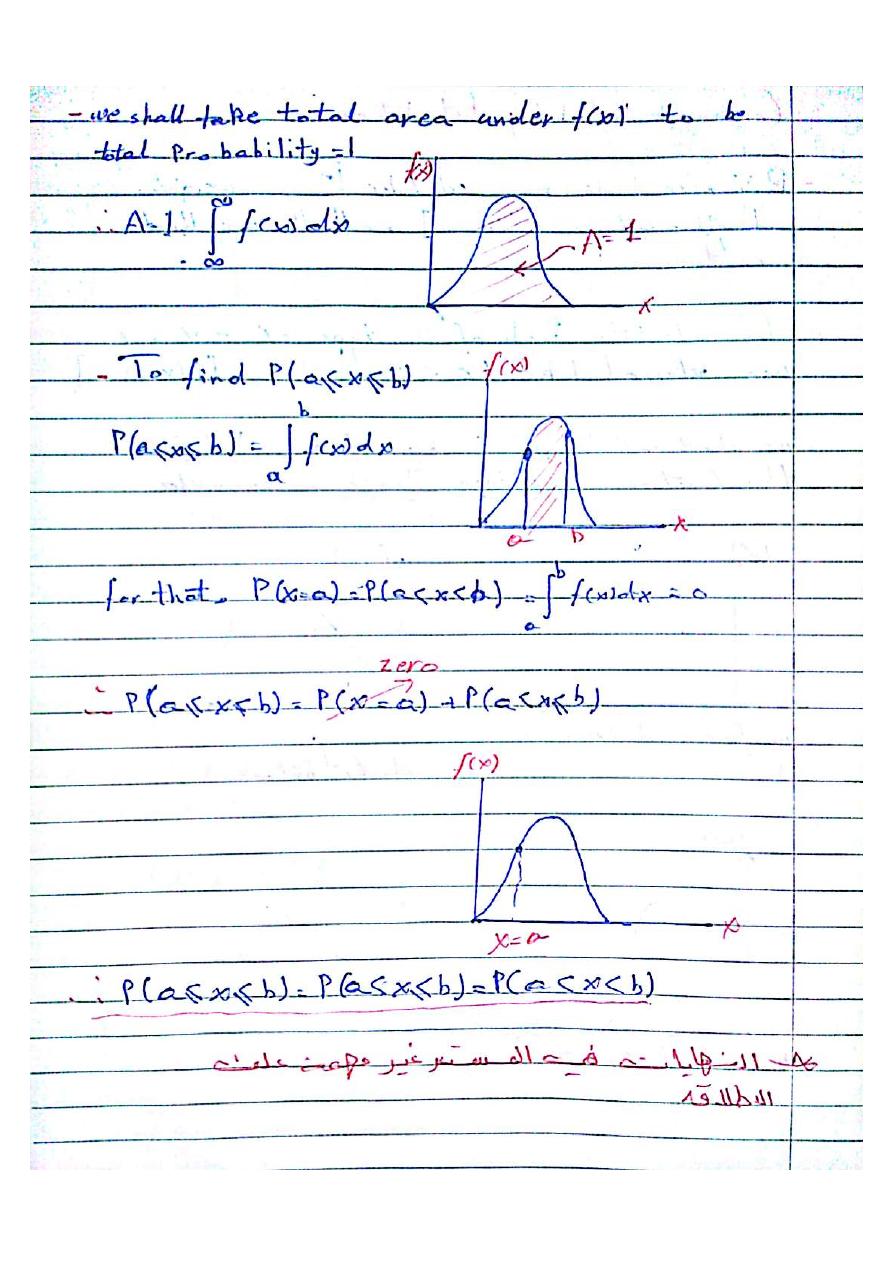 - we shall take total area under f(x) to be
total Probability = 1
f(x)
∴ A=1 ∫_{-∞}^{∞} f(x) dx
A = 1
x
- To find P(a⩽x⩽b)
f(x)
P(a⩽x⩽b) = ∫_a^b f(x) dx
a b x
for that. P(x=a) = P(a<x<b) = ∫_a^b f(x) dx = 0
zero
∴ P(a⩽x⩽b) = P(x=a) + P(a<x⩽b)
f(x)
x
x=a
∴ P(a⩽x⩽b) = P(a⩽x<b) = P(a<x<b)
النهايات في المستمر غير مهمة على
الاطلاق